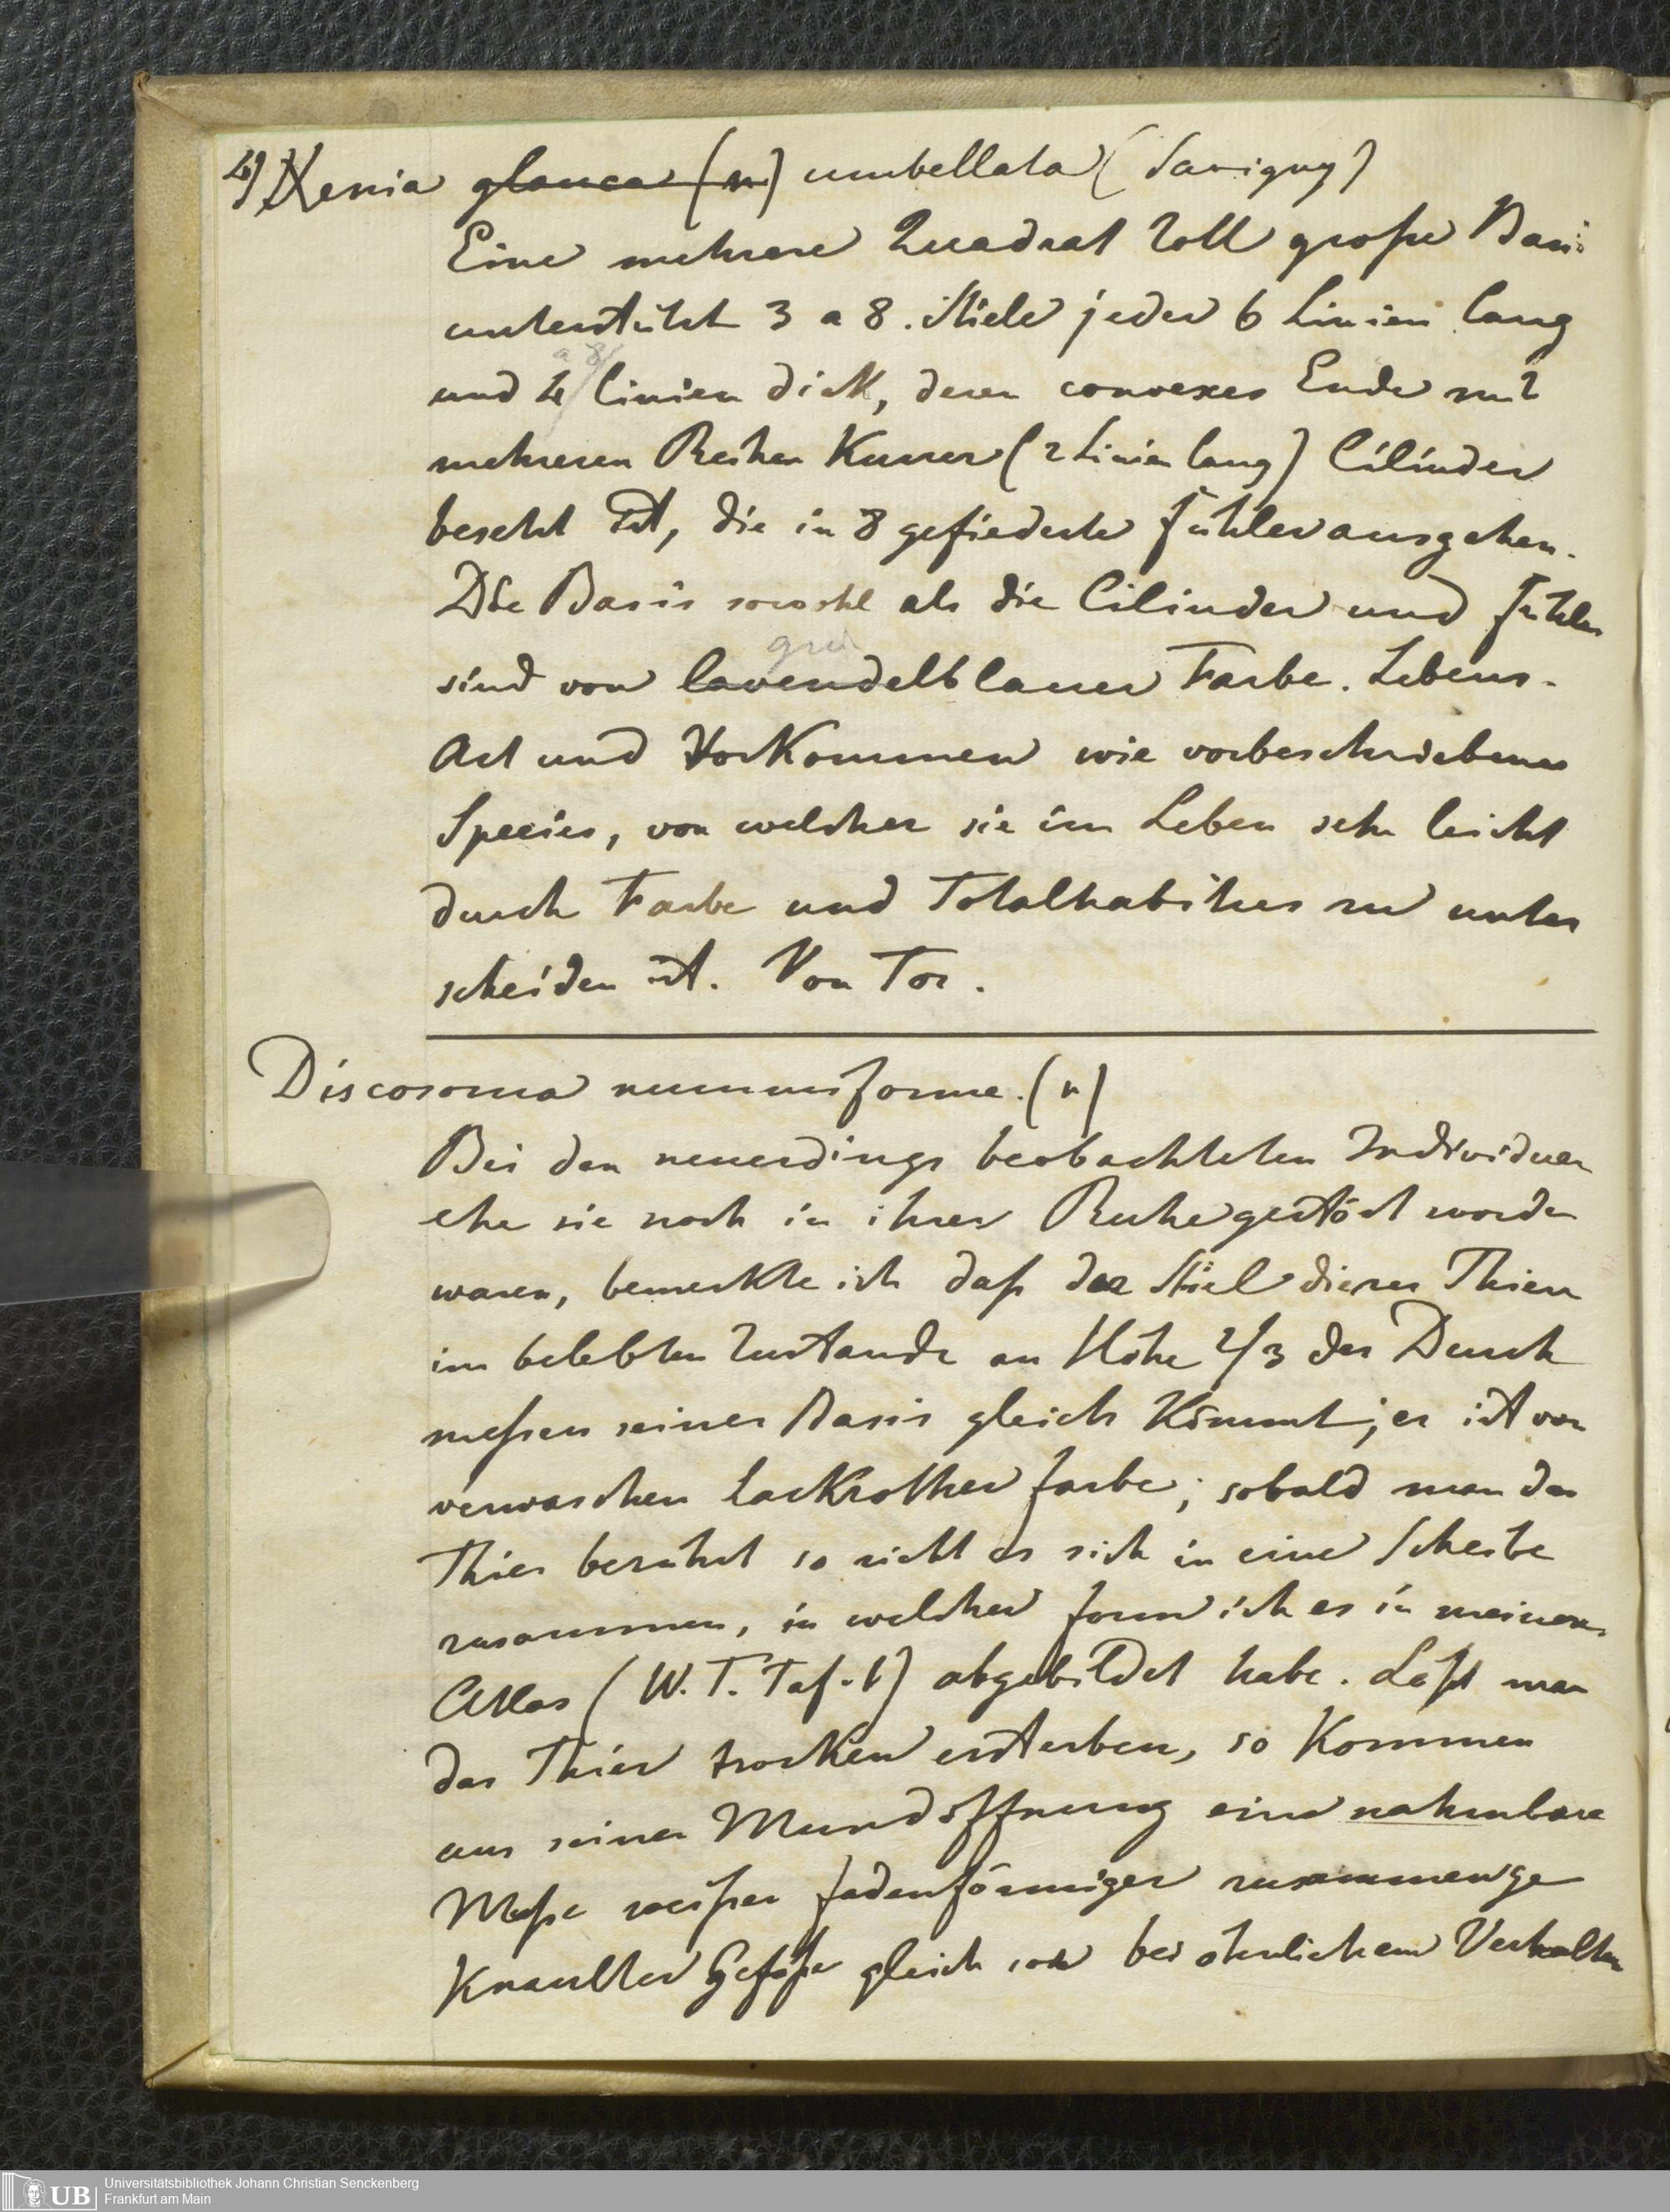 4) Xenia glauca (n) umbellata (Savigny)
Eine mehrere Quadrat Zoll große Basis
unterstützt 3 a 8. Stiele jeder 6 Linien lang
a 8
und 4 linien dick, deren convexes Ende mit
mehreren Reihen Kurzer (2 Linien lang) Cilinder
besetzt ist, die in 8 gefiederte fühler ausgehen.
Die Basis sowohl als die Cilinder und fühler
grü
sind von lavendelblauer Farbe. Lebens-
Art und VorKommen wie vorbeschriebene
Species, von welcher sie im Leben sehr leicht
durch Farbe und Totalhabitus zu unter
scheiden ist. Von Tor.
Discosoma nummiforme. (n)
Bei den neuerdings beobachteten Individuen
ehe sie noch in ihrer Ruhe gestört worden
waren, bemerkte ich daß der Stiel dieser Thiere
im belebten Zustande an Höhe 2/3 des Durch
meßers seiner Basis gleich Kömmt; er ist von
verwaschen LacKrother farbe; sobald man das
Thier berührt so zieht es sich in eine Scheibe
zusammen, in welcher form ich es in meinem
Atlas (W. T. Taf. 1) abgebildet habe. Läßt man
das Thier trocken ersterben, so Kommen
aus seiner Mundöffnung eine nahmbare
Maße weißer fadenförmiger zusammenge
Knaulter Gefäße gleich wie bei ähnlichem Verhalten
Universitätsbibliothek Johann Christian Senckenberg
UB Frankfurt am Main